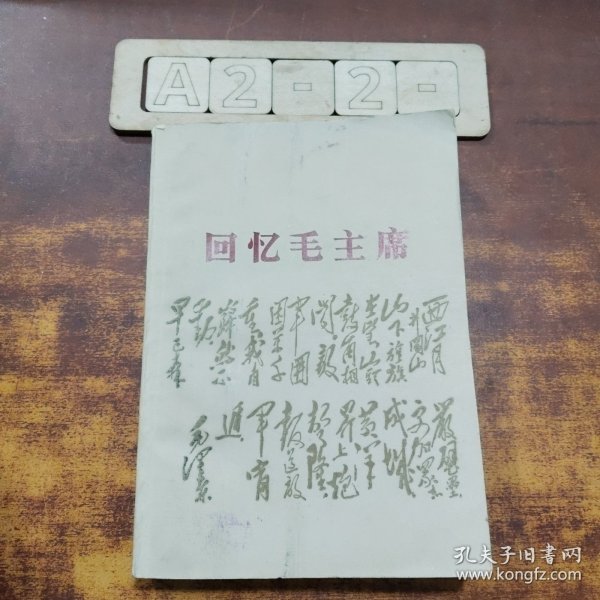 A2-2-
回忆毛主席
西江月
井岡山
山下旌旗
在望山头
鼓角相
闻敌
军围
困万千
重我自
巋然不
动
早已森
嚴壁垒
更加众志
成城
黄洋
界上炮
声隆
报道敌
军宵
遁
毛泽东
孔夫子旧书网
www.kongfz.com